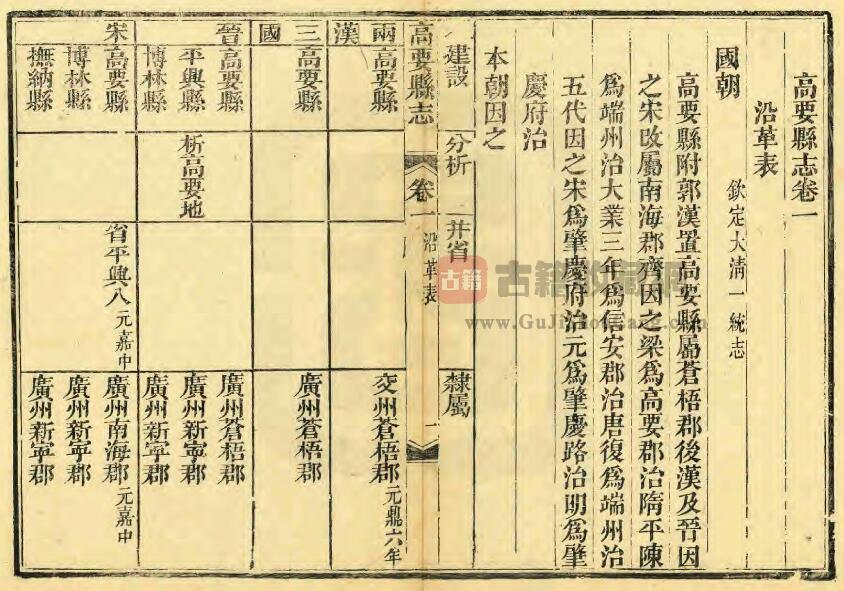 高要縣志卷一
沿革表
國朝
欽定大清一統志
高要縣附郭漢置高要縣屬蒼梧郡後漢及晉因
之宋改屬南海郡齊因之梁爲高要郡治隋平陳
爲端州治大業三年爲信安郡治唐復爲端州治
五代因之宋爲肇慶府治元爲肇慶路治明爲肇
慶府治
本朝因之
建設 分析 并省 隸屬
高要縣志 卷一 沿革表 一
兩漢 高要縣 交州蒼梧郡元鼎六年
三國 高要縣 廣州蒼梧郡
晉 高要縣 廣州蒼梧郡
平興縣 析高要地 廣州新寧郡
博林縣 廣州新寧郡
宋 高要縣 省平興入元嘉中 廣州南海郡元嘉中
博林縣 廣州新寧郡
撫納縣 廣州新寧郡
古籍
古籍收藏网
www.GuJiShouCang.com